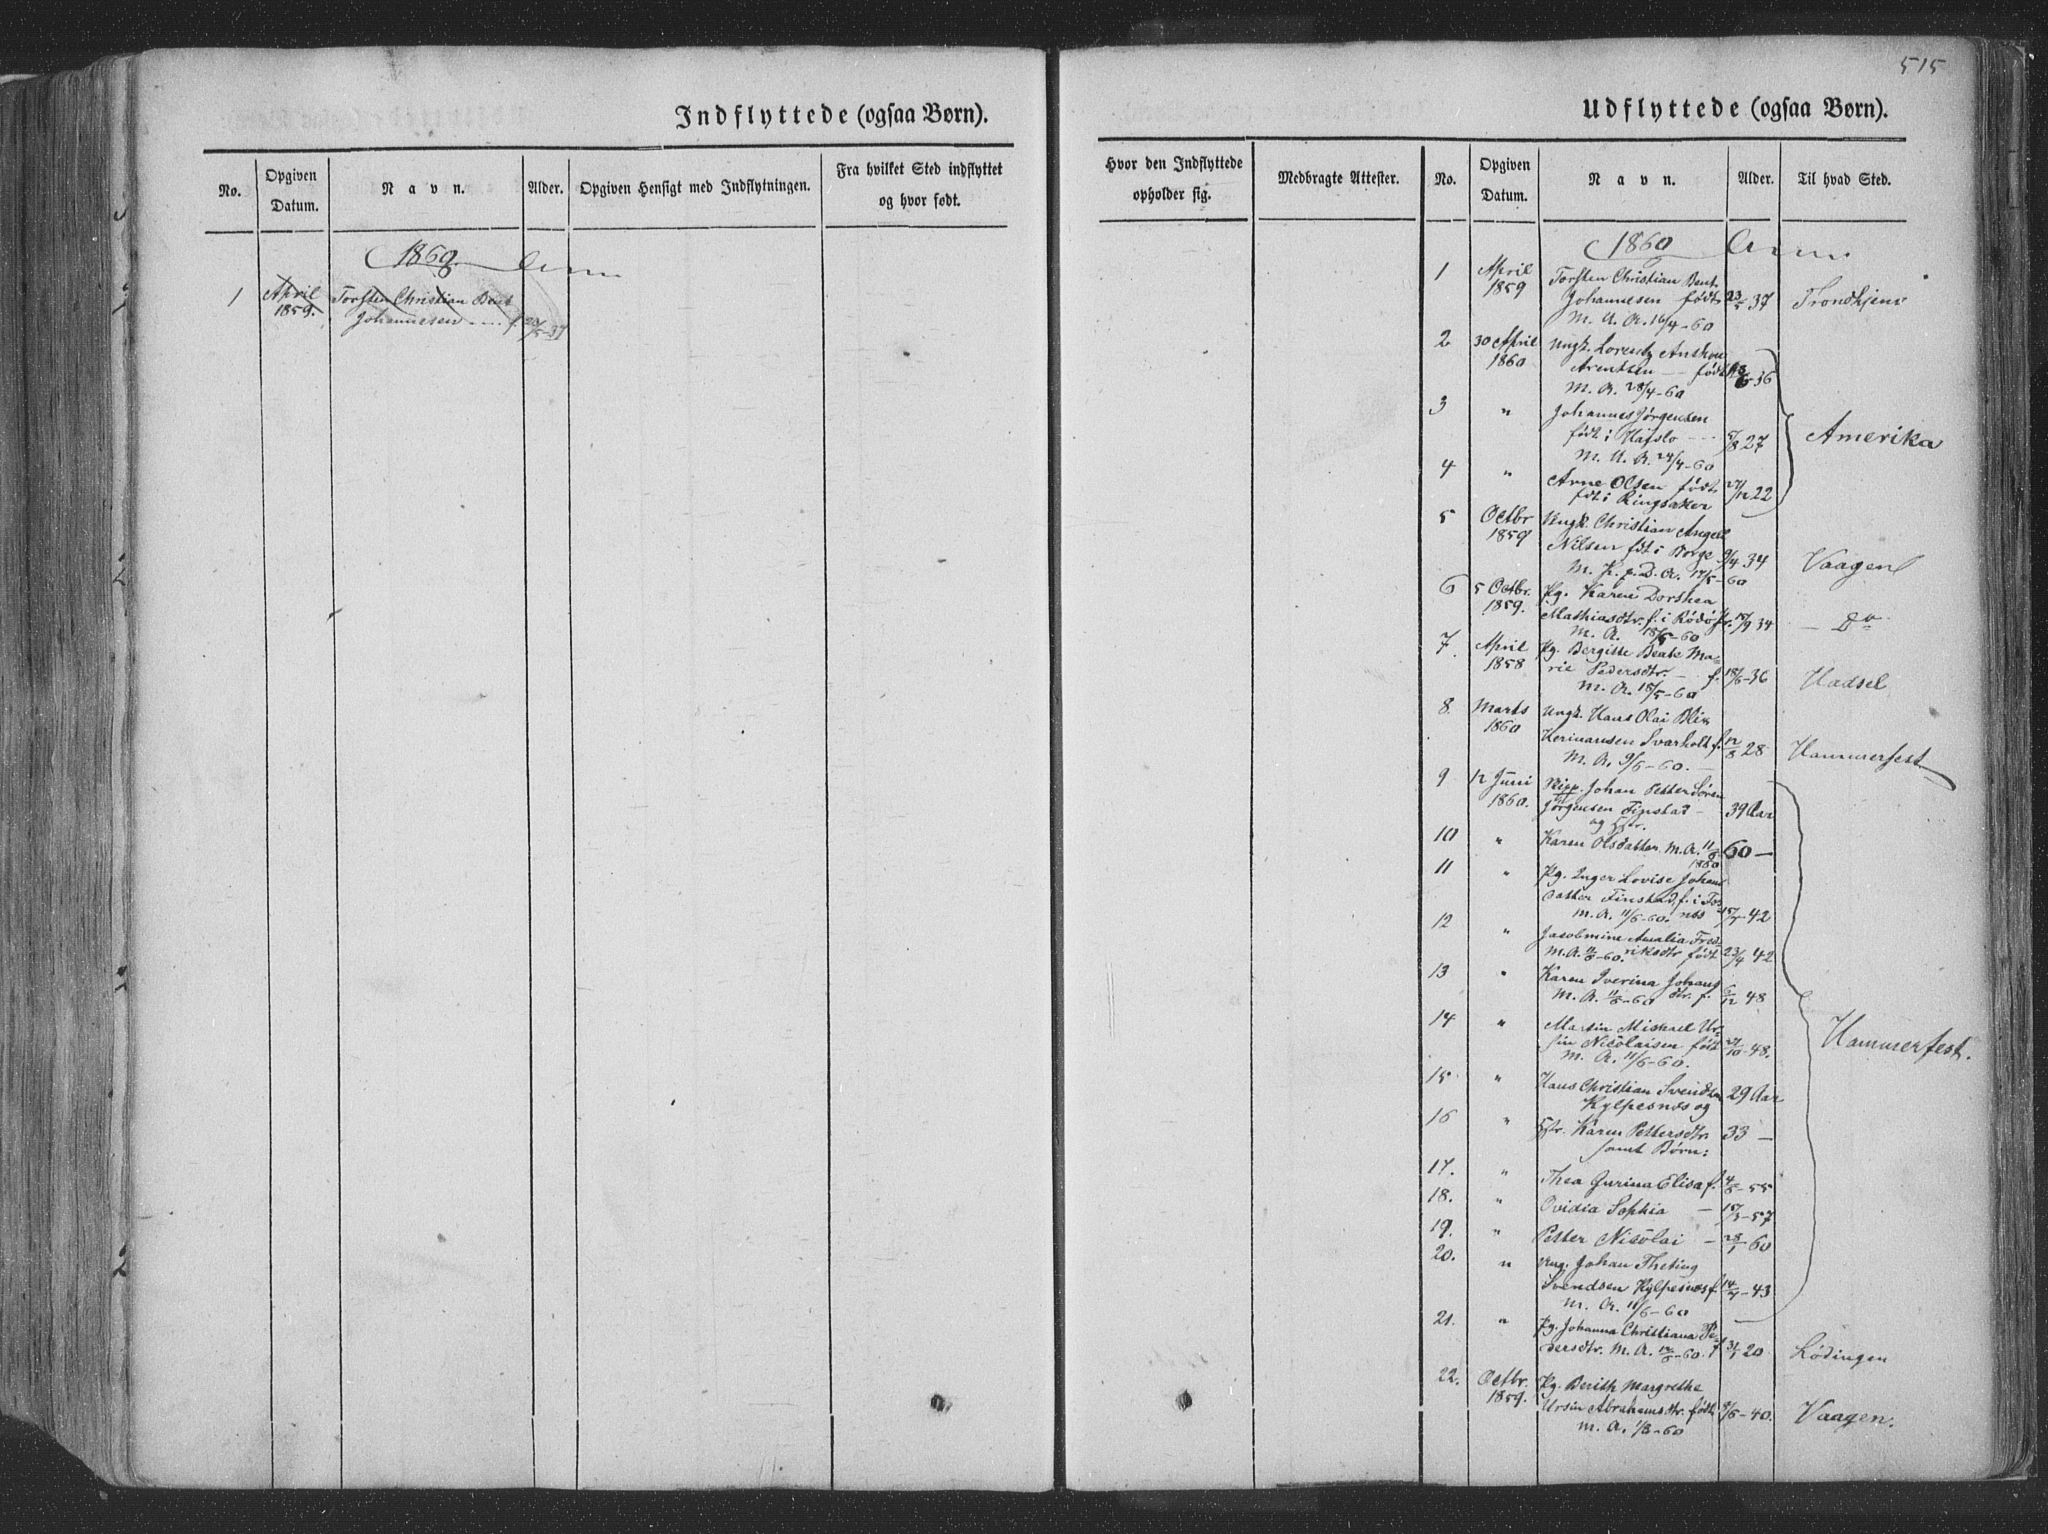 515
Indflyttede (ogsaa Børn).
No.
Opgiven Datum.
Navn.
Alder.
Opgiven Hensigt med Indflytningen.
Fra hvilket Sted indflyttet og hvor født.
1860
1 April Torsten Christian Bent
1859. Johannesen f. 23/5-37
Udflyttede (ogsaa Børn).
Hvor den Indflyttede opholder sig.
Medbragte Attester.
No.
Opgiven Datum.
Navn.
Alder.
Til hvad Sted.
1860
1 April Torsten Christian Bent
1859 Johannesen født 23/5 37 Trondhjem
M. U. A. 16/4-60
2 30 April Ungk. Lorentz
1860 Arentsen født -36
M. A. 28/4-60
3 " Johannes Jørgensen
født i Hafslo 5/8 27 Amerika
M. U. A. 24/4-60
4 " Arne Olsen født 27/12 22
fdt i Ringsaker
5 Octbr Ungk. Christian Angell
1859 Nilsen fdt i Borge 9/4 34 Vaagen
M. K. p. D. A. 17/5-60
6 5 Octbr. Pg. Karen Dorthea
1859. Mathiasdtr. f. i Rödö 17/9 34 Do
M. A. 18/5-60
7. April Pg. Bergitte Beate Ma-
1858 rie Pedersdtr. f. 18/6-36 Hadsel
M. A. 18/5-60
8. Marts Ungk. Hans Olai Blix
1860 Hermansen Svarholt f. 12/8 28 Hammerfest
M. A. 9/6-60.
9 12 Juni Johan Petter Søren
1860. Jørgensen Finstad 39 Aar
og Hstr.
10 " Karen Olsdatter M. A. 11/6 1860 60 —
11 " Pg. Inger Lovise Johans
datter Finstad f. i 15/7-42
M. A. 11/6-60.
12 " Jacobmine Amalia Fred-
M. A. 11/6-60. riksdtr født 23/4 42
13 " Karen Iverina Johans
M. A. 11/6-60 dtr. f. 6/12 48
14 " Martin Mickael Ur-
sin Nicolaisen født 27/10-48. Hammerfest.
M. A. 11/6-60.
15 " Hans Christian Svendsen 29 Aar
Kylpesnes og
16 " Hstr. Karen Pettersdtr 33 —
samt Børn:
17. " Thea Gurina Elisa f. 4/5-55
18. " Ovidia Sophia — 15/3-57
19. " Petter Nicolai — 28/1 60
20. " Ung. Johan Theting
Svendsen Kylpesnes f. 14/7-43
M. A. 11/6-60
21. " Pg. Johanna Christiana Pe-
dersdtr. M. A. 12/6-60. f 31/1 20 Lödingen
22. Octbr. Pg. Berith Margrethe
1859. Ursin Abrahamsdtr. født 9/6-40. Vaagen.
M. A. 1/8-60